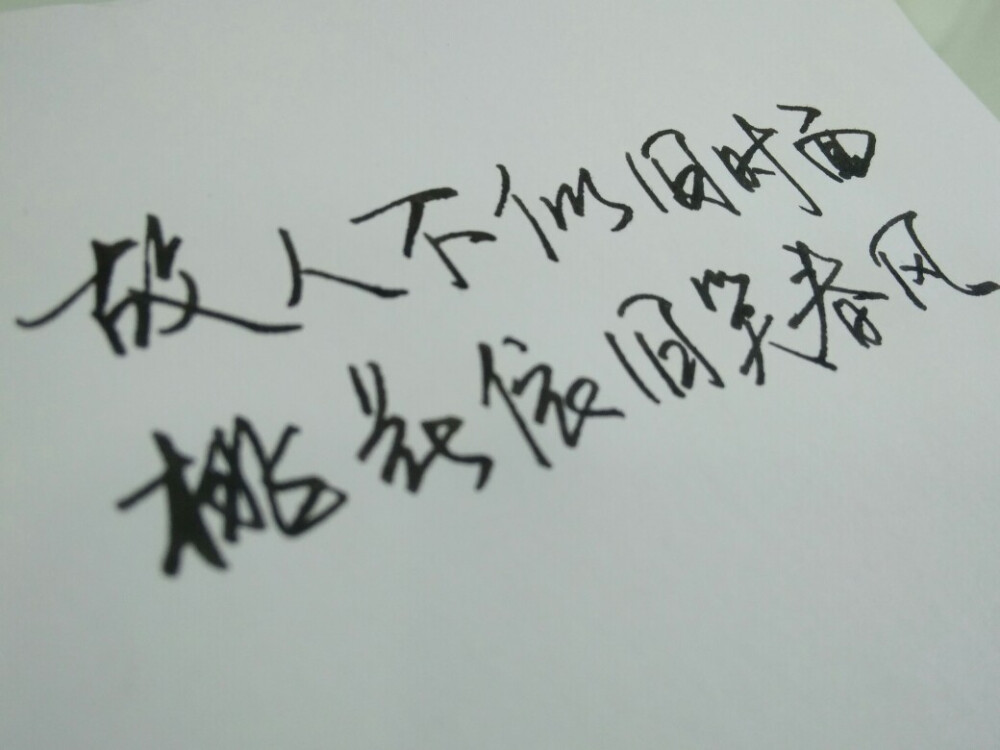 故人不似旧时面
桃花依旧笑春风